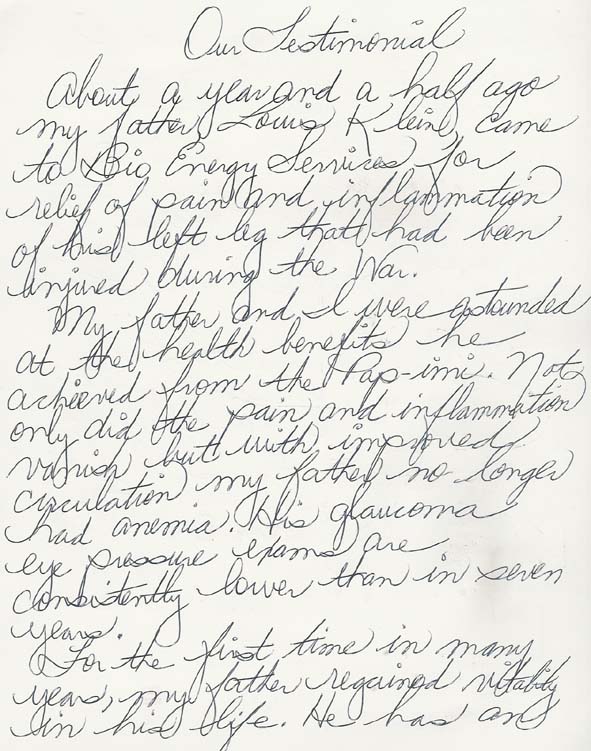 Our Testimonial
About a year and a half ago
my father, Louis Klein, came
to Bio Energy Services for
relief of pain and inflammation
of his left leg that had been
injured during the War.
My father and I were astounded
at the health benefits he
achieved from the Pap-imi. Not
only did the pain and inflammation
vanish but with improved
circulation my father no longer
had anemia. His glaucoma
eye pressure exams are
consistently lower than in seven
years.
For the first time in many
years, my father regained vitality
in his life. He has an